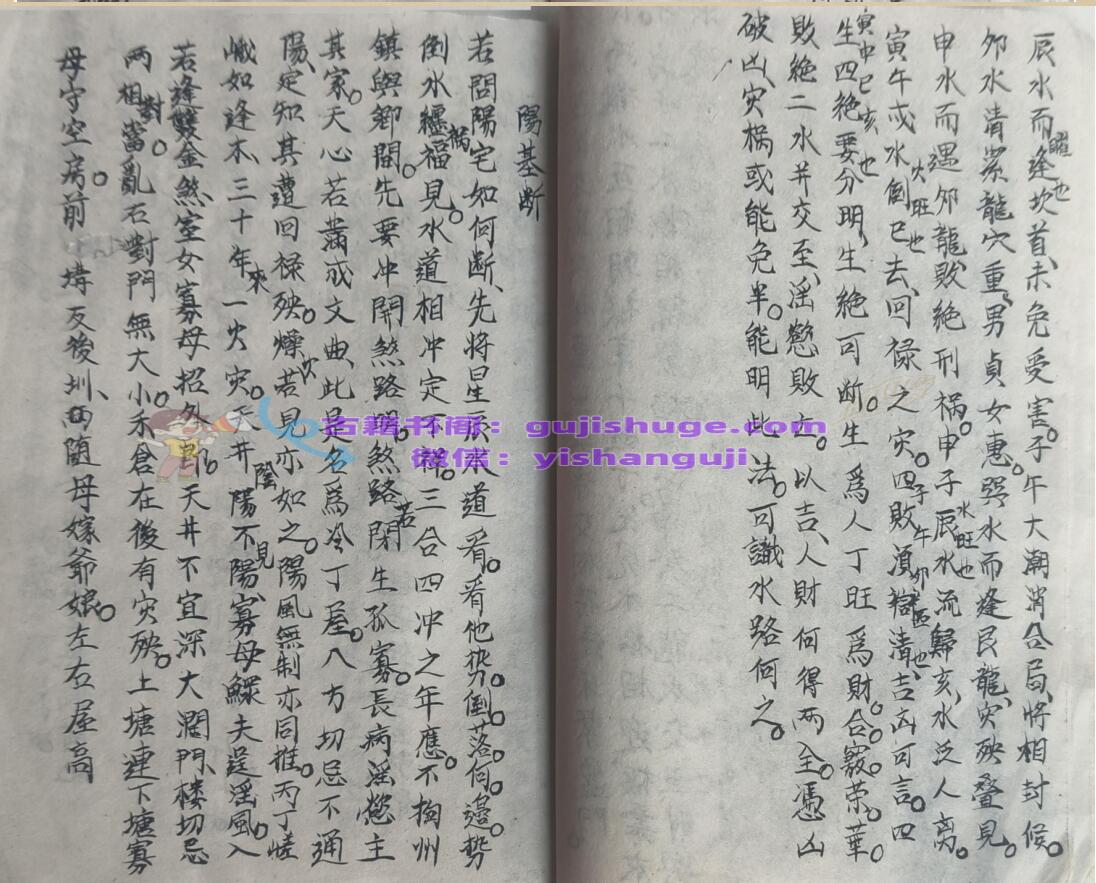 辰水而逢坎首、未免受害。子午大潮消合局、將相封候。
曜也
夘水清潔龍穴重、男貞女惠。巽水而逢艮龍、灾殃叠見。
申水而遇夘龍、敗絶刑禍。申子辰水流歸亥、水泛人离。
水旺也
寅午戌水倒巳去、回禄之灾。四敗須嶽清、吉凶可言。四
火旺也
子午夘酉也
生四絶要分明、生絶可断。生爲人丁旺爲財。合竅榮華。
寅申巳亥也
敗絶二水并交至、淫慾敗亡。以吉、人財何得兩全。憑凶
破凶、灾禍或能免半。能明此法。可識水路何之。
陽基断
若問陽宅如何断、先將星辰来道看。看他势。倒落何邉。势
倒水纒福見。水道相冲定不祥。三合四冲之年應。不拘州
禍
鎮與鄉間。先要冲開煞路明。煞路若閉生孤寡。長病淫慾主
其家。天心若蕩戌文曲、此是名爲冷丁屋。八方切忌不通
陽、定知其遭回禄殃。燥火若見亦如之。陽風無制亦同推。丙丁
嶬如逢木、三十年來一火灾。天井陰陽不見陽、寡母鰥夫逞淫風。入
若逢雙金煞、室女寡母招外郎。天井不宜深大濶、門楼切忌
两相對當。亂石對門無大小。禾倉在後有灾殃。上塘連下塘寡
母守空房。前塘反後圳、両随母嫁爺娘。左右屋高
古籍书阁：gujishuge.com
微信：yishanguji